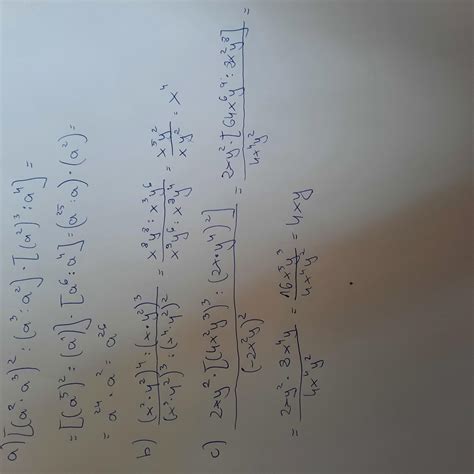 a) [(a²·a³)² : (a³:a²)]·[(a²)³:a⁴] =
= [(a⁵)² : (a¹)]·[a⁶:a⁴] = (a²⁵:a)·(a²) =
= a²⁴·a² = a²⁶
b) (x²·y²)⁴ : (x·y²)³ / (x³·y²)³ : (x⁴·y²)² = x⁸y⁸ : x³y⁶ / x⁹y⁶ : x⁸y⁴ = x⁵y² / xy² = x⁴
c) 2xy²·[(4x²y³)³ : (2x·y⁴)²] / (-2x²y)² = 2xy²·[64x⁶y⁹ : 8x²y⁸] / 4x⁴y² =
= 2xy²·8x⁴y / 4x⁴y² = 16x⁵y³ / 4x⁴y² = 4xy